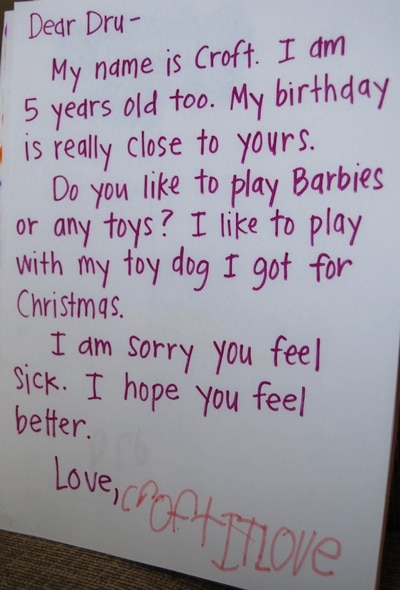 Dear Dru-
My name is Croft. I am
5 years old too. My birthday
is really close to yours.
Do you like to play Barbies
or any toys? I like to play
with my toy dog I got for
Christmas.
I am sorry you feel
sick. I hope you feel
better.
Love, croft
Love